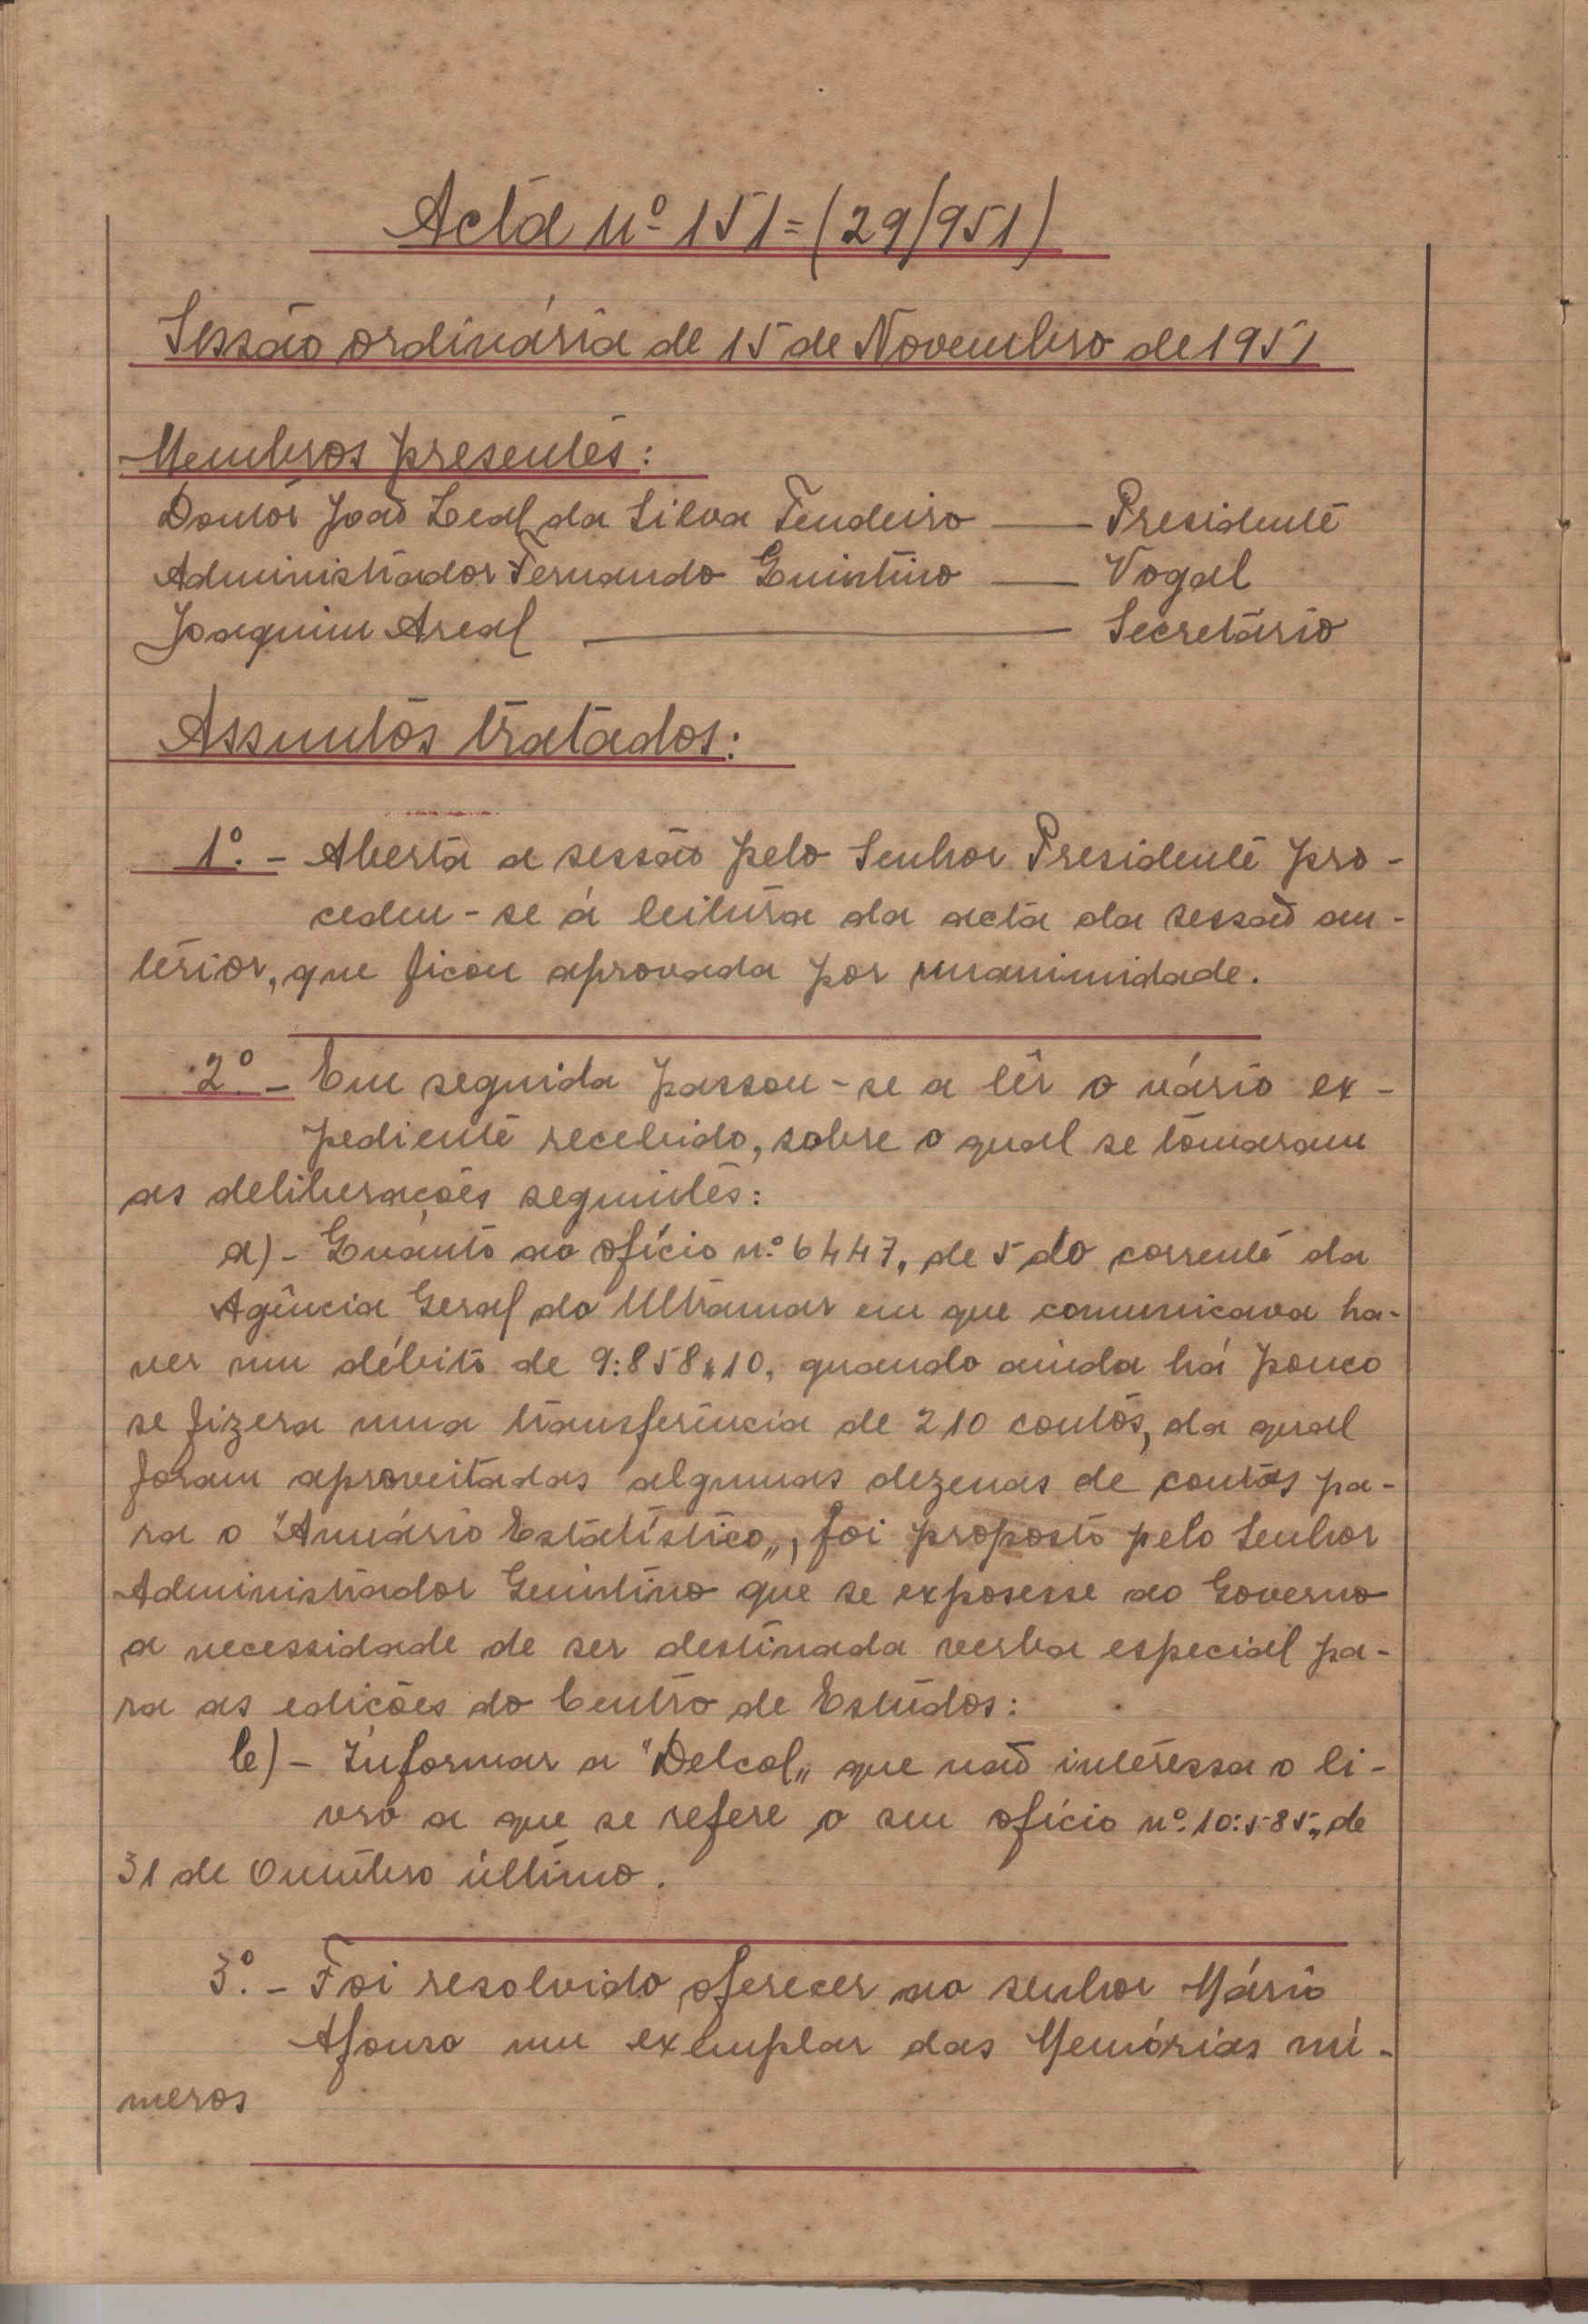 Acta nº 151=(29/951)
Sessão ordinária de 15 de Novembro de 1951
Membros presentes:
Doutor João Leal da Silva Tendeiro — Presidente
Administrador Fernando Quintino — Vogal
Joaquim Areal — Secretário
Assuntos tratados:
1º. - Aberta a sessão pelo Senhor Presidente pro-
cedeu-se á leitura da acta da sessão an-
terior, que ficou aprovada por unanimidade.
2º - Em seguida passou-se a lêr o vário ex-
pediente recebido, sobre o qual se tomaram
as deliberações seguintes:
a) - Quanto ao ofício nº 6447, de 5 do corrente da
Agência Geral do Ultramar em que comunicava ha-
ver um débito de 9:858$10, quando ainda há pouco
se fizera uma transferência de 210 contos, da qual
foram aproveitadas algumas dezenas de contos pa-
ra o "Anuário Estatístico„, foi proposto pelo Senhor
Administrador Quintino que se exposesse ao Governo
a necessidade de ser destinada verba especial pa-
ra as edições do Centro de Estudos:
b) - Informar a "Delcol„ que não interessa o li-
vro a que se refere o seu ofício nº. 10:585, de
31 de Outubro último.
3º. - Foi resolvido oferecer ao senhor Mário
Afonso um exemplar das Memórias nú-
meros